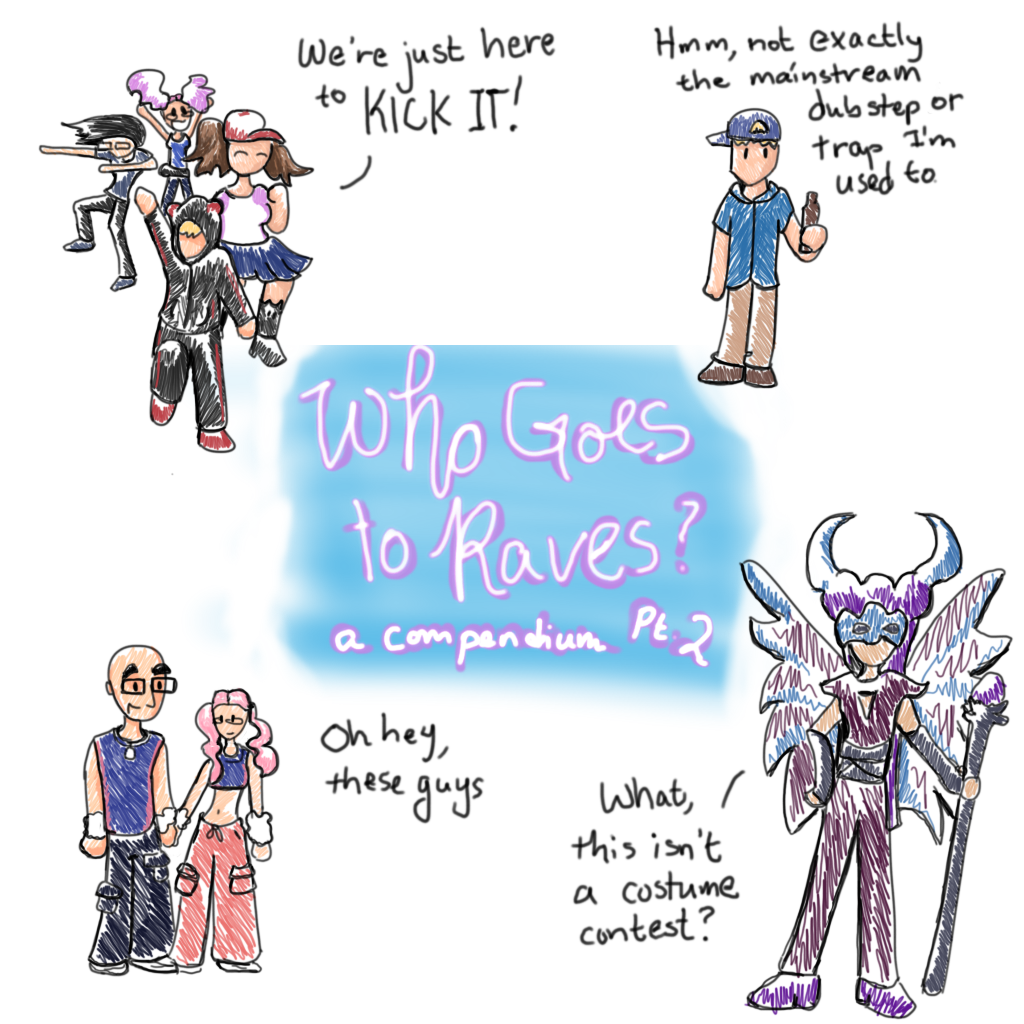 We're just here
to KICK IT!
Hmm, not exactly
the mainstream
dubstep or
trap I'm
used to
Who Goes
to Raves?
a compendium Pt. 2
Oh hey,
these guys
What,
this isn't
a costume
contest?